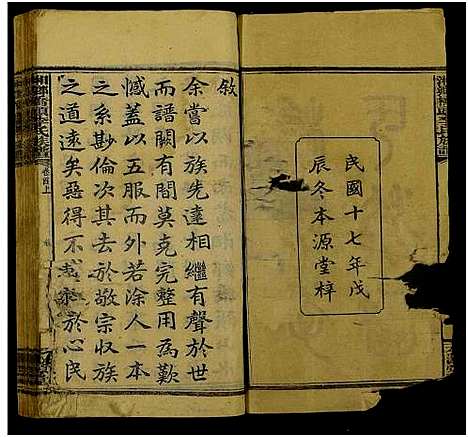 民國十七年戊
辰冬本源堂梓
敘
余嘗以族先達相繼有聲於世
而譜闕有間莫克完整用爲歎
憾蓋以五服而外若涂人一本
之系斟其去於敬宗收族
之道遠矣惡得不 於心民
卷首上